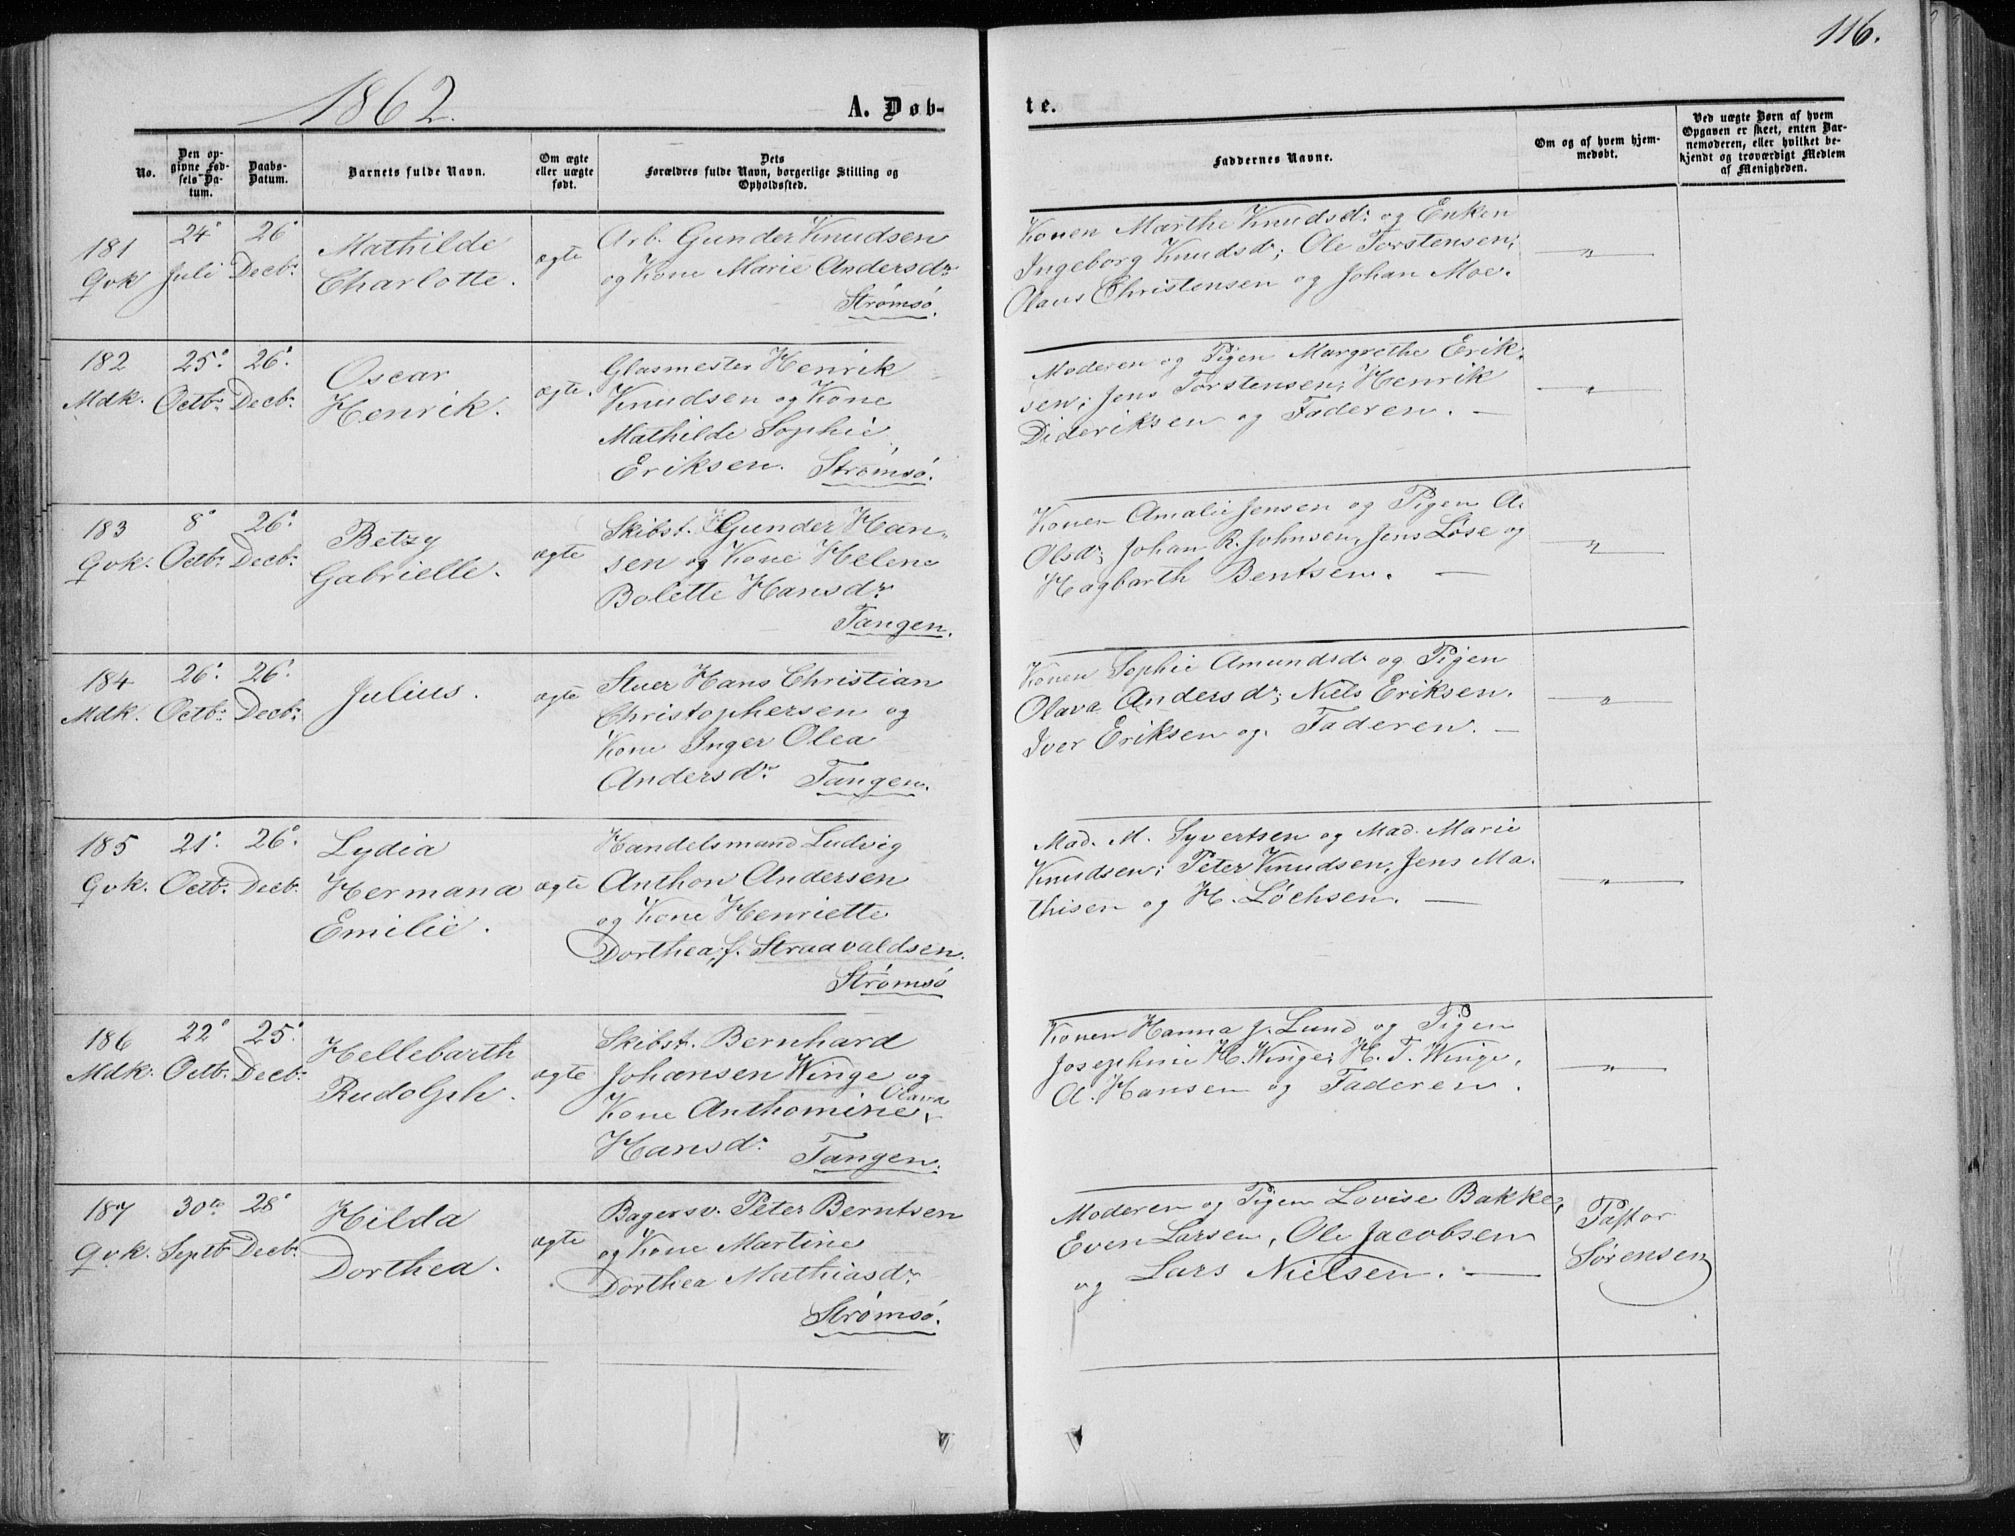 116.
1862.
A. Døb-
te.
No.
Den op-
givne Fød-
sels Da-
tum.
Daabs-
Datum.
Barnets fulde Navn.
Om ægte
eller uægte
født.
Dets
Forældres fulde Navn, borgerlige Stilling og
Opholdssted.
Faddernes Navne.
Om og af hvem hjem-
medøbt.
Ved uægte Børn af hvem
Opgaven er skeet, enten Bar-
nemoderen, eller hvilket be-
kjendt og troværdigt Medlem
af Menigheden.
181
Qvk
24°
Juli
26°
Decbr
Mathilde
Charlotte.
ægte
Arb. Gunder Knudsen
og Kone Marie Andersdr
Strømsö.
Konen Marthe Knudsdr og Enken
Ingeborg Knudsdr; Ole Torstensen;
Olaus Christensen og Johan Moe.
"
182
Mdk.
25°
Octbr
26°
Decbr
Oscar
Henrik.
ægte.
Glasmester Henrik
Knudsen og Kone
Mathilde Sophie
Eriksen. Strømsö.
Moderen og Pigen Margrethe Erik-
sen; Jens Torstensen; Henrik
Dideriksen og Faderen. —
"
183
Qvk.
8°
Octbr
26°
Decbr
Betzy
Gabrielle.
ægte
Skibst. Gunder Han-
sen og Kone Helene
Bolette Hansdr
Tangen.
Konen Amalie Jensen og Pigen A.
Olsdr; Johan R. Johnsen, Jens Löse og
Hagbarth Bentsen. —
"
184
Mdk.
26°
Octbr
26°
Decbr
Julius.
ægte
Stuer Hans Christian
Christophersen og
Kone Inger Olea
Andersdr Tangen.
Konen Sophie Amundsdr og Pigen
Olava Andersdr; Niels Eriksen.
Iver Eriksen og Faderen. —
"
185
Qvk.
21°
Octbr
26°
Decbr
Lydia
Hermana
Emilie.
ægte
Handelsmand Ludvig
Anthon Andersen
og Kone Henriette
Dorthea f. Straavaldsen.
Strømsö
Mad. M. Syvertsen og Mad. Marie
Knudsen; Peter Knudsen, Jens Ma-
thisen og H. Löchsen. —
"
186
Mdk.
22°
Octbr
25°
Decbr
Hellebarth
Rudolph.
ægte
Skibst. Bernhard
Johansen Winge og
Olava
Kone Anthomine
Hansdr Tangen.
Konen Hanna J. Lund og Pigen
Josephine H. Winge; H. T. Winge,
A. Hansen og Faderen.
"
187
Qvk.
30te
Septbr
28°
Decbr
Hilda
Dorthea.
ægte
Bagersv. Peter Berntsen
og Kone Martine
Dorthea Mathiasdr
Strømsö.
Moderen og Pigen Lovise Bakke,
Even Larsen, Ole Jacobsen
og Lars Nielsen. —
Pastor
Sörensen